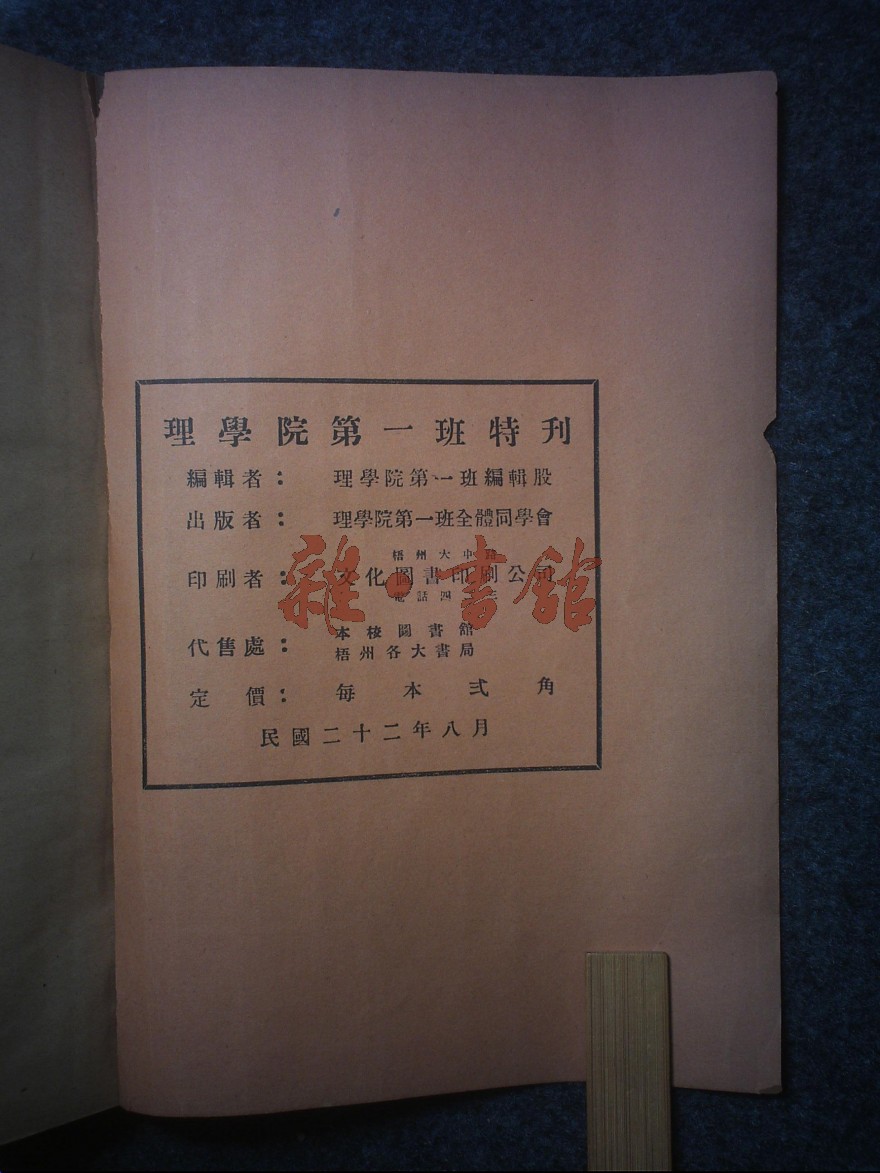 理學院第一班特刊
編輯者： 理學院第一班編輯股
出版者： 理學院第一班全體同學會
梧州大中
印刷者： 文化圖書印刷公司
電話四
代售處： 本校圖書館
梧州各大書局
定價： 每本弍角
民國二十二年八月
雜·書館